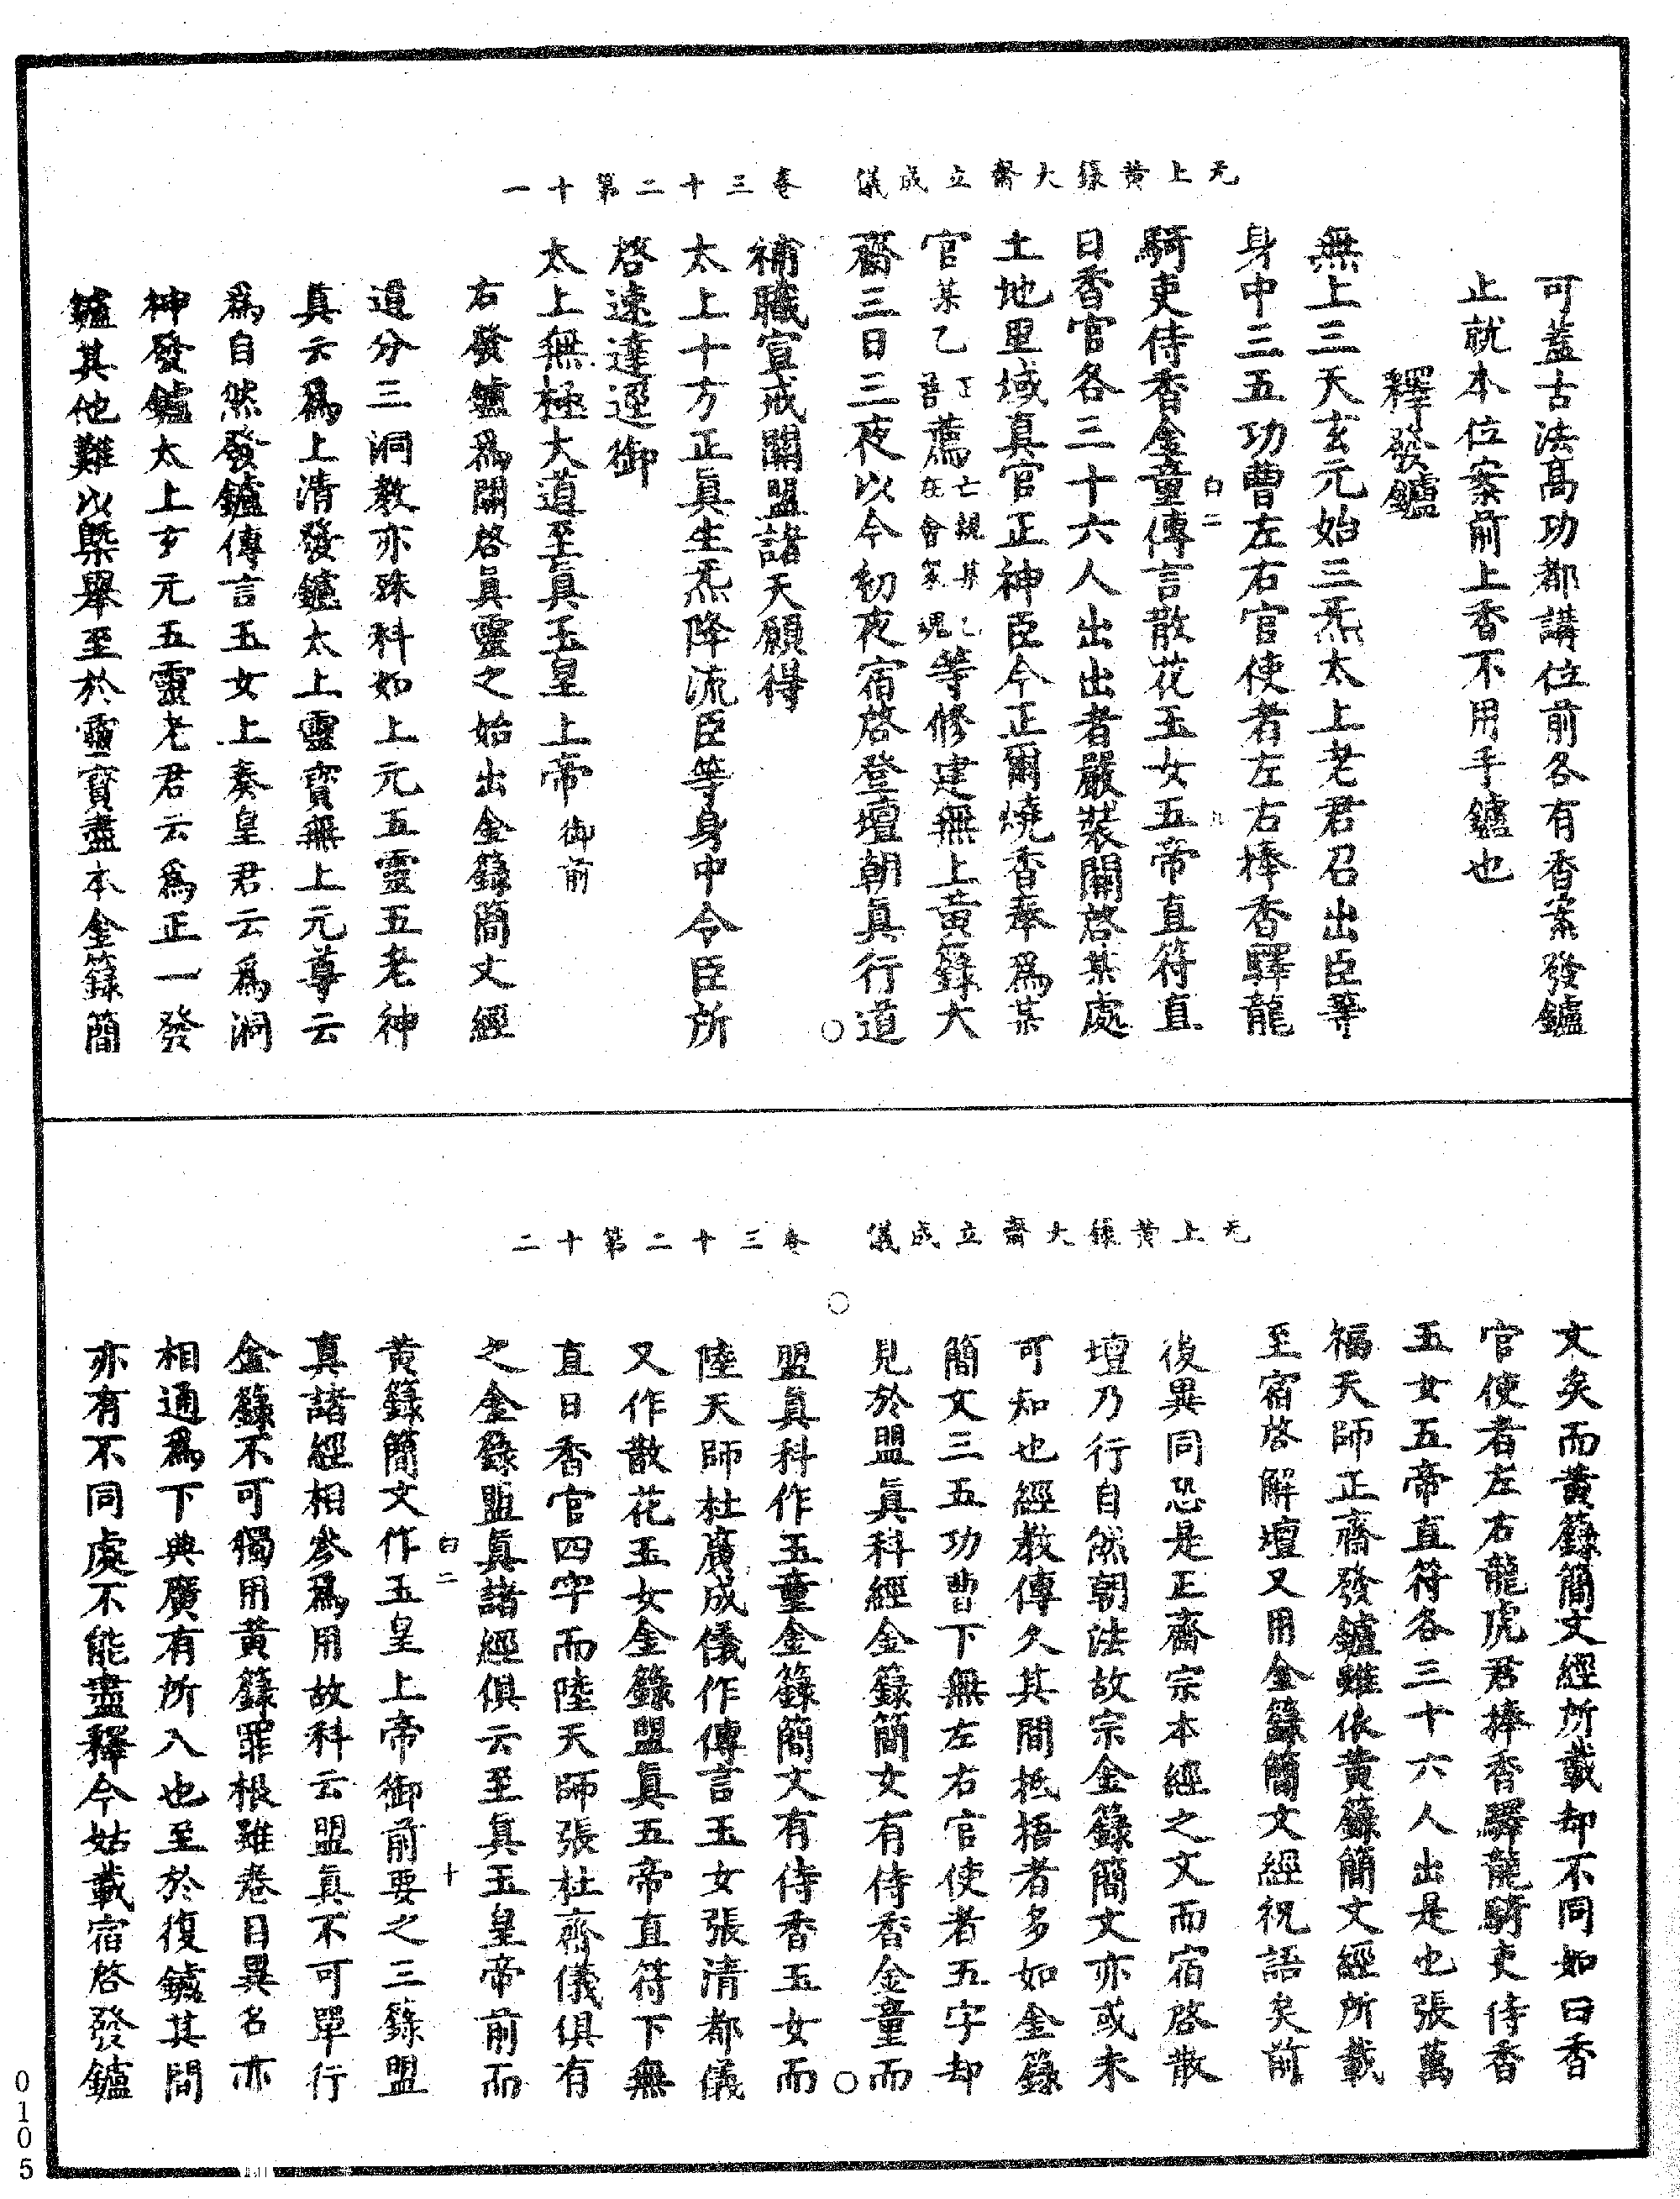 无上黃籙大齋立成儀　卷三十二第十一
可蓋古法高功都講位前各有香案發鑪
止就本位案前上香不用手鑪也
釋發鑪
無上三天玄元始三炁太上老君召出臣等
身中三五功曹左右官使者左右捧香驛龍
白二
九
騎吏侍香金童傳言散花玉女五帝直符直
日香官各三十六人出出者嚴裝關啓某處
土地里域真官正神臣今正爾燒香奉爲某
官某乙薦亡親某乙等修建無上黃籙大
齋三日三夜以今初夜宿啓登壇朝眞行道
補職宣戒關盟諸天願得
太上十方正眞生炁降流臣等身中令臣所
啓速達逕御
太上無極大道至眞玉皇上帝御前
右發鑪爲關啓眞靈之始出金籙簡文經
道分三洞敎亦殊科如上元五靈五老神
真云爲上清發鑪太上靈寶無上元尊云
爲自然發鑪傳言玉女上奏皇君云爲洞
神發鑪太上玄元五靈老君云爲正一發
鑪其他難以槩舉至於靈寶盡本金籙簡
无上黃籙大齋立成儀　卷三十二第十二
文矣而黃籙簡文經所載却不同如曰香
官使者左右龍虎君捧香驛龍騎吏侍香
玉女五帝直符各三十六人出是也張萬
福天師正齋發鑪雖依黃籙簡文經所載
至宿啓解壇又用金籙簡文經祝語矣前
後異同恐是正齋宗本經之文而宿啓散
壇乃行自然朝法故宗金籙簡文亦或未
可知也經敎傳久其間抵捂者多如金籙
簡文三五功曹下無左右官使者五字却
見於盟眞科經金籙簡文有侍香金童而
盟眞科作玉童金籙簡文有侍香玉女而
陸天師杜廣成儀作傳言玉女張清都儀
又作散花玉女金籙盟眞五帝直符下無
直日香官四字而陸天師張杜齋儀俱有
之金籙盟眞諸經俱云至眞玉皇帝前而
白二
十
黃籙簡文作玉皇上帝御前要之三籙盟
真諸經相參爲用故科云盟眞不可單行
金籙不可獨用黃籙罪根雖卷目異名亦
相通爲下典廣有所入也至於復鑪其間
亦有不同處不能盡釋今姑載宿啓發鑪
0105